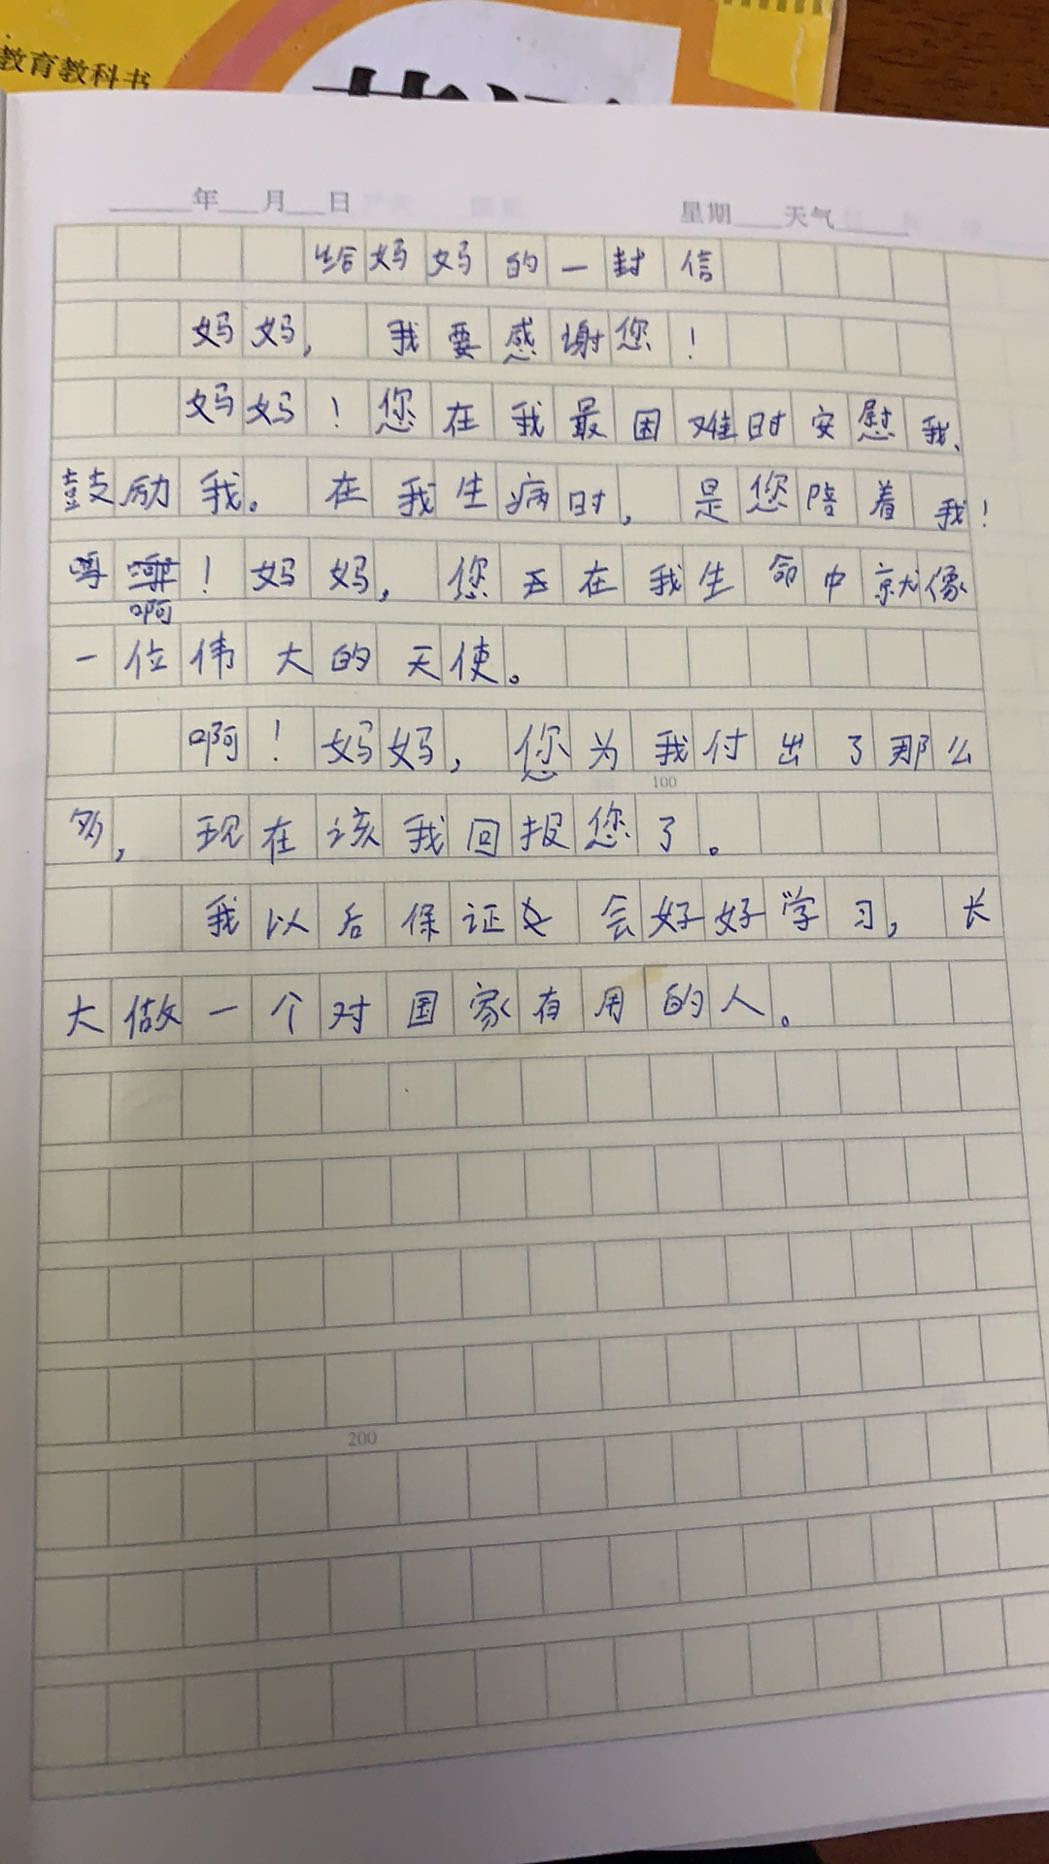 教育教科书
年 月 日 星期 天气
给妈妈的一封信
妈妈,我要感谢您!
妈妈!您在我最困难时安慰我、
鼓励我。在我生病时,是您陪着我!
啊!妈妈,您在我生命中就像
一位伟大的天使。
啊!妈妈,您为我付出了那么
100
多,现在该我回报您了。
我以后保证会好好学习,长
大做一个对国家有用的人。
200